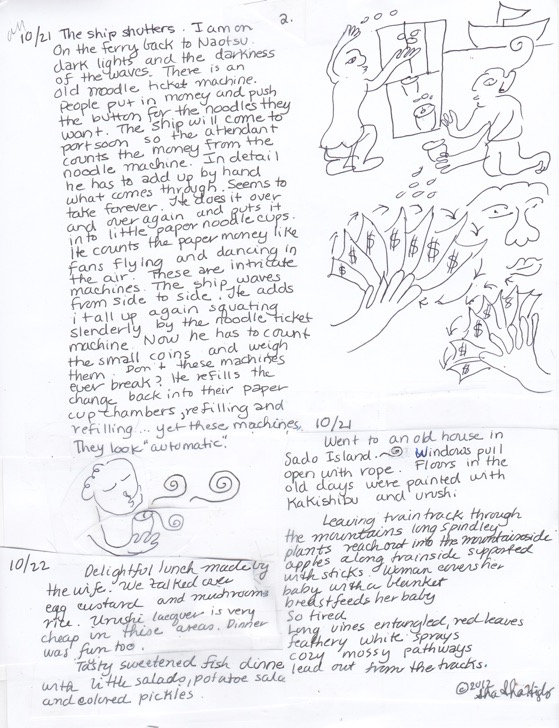 2.
10/21 The ship shutters. I am on
On the ferry back to Naotsu.
dark lights and the darkness
of the waves. There is an
old noodle ticket machine.
People put in money and push
the button for the noodles they
want. The ship will come to
port soon so the attendant
counts the money from the
noodle machine. In detail
he has to add up by hand
what comes through. Seems to
take forever. He does it over
and over again and puts it
into little paper noodle cups.
He counts the paper money like
fans flying and dancing in
the air. These are intricate
machines. The ship waves
from side to side. He adds
it all up again squating
slenderly by the noodle ticket
machine. Now he has to count
the small coins and weigh
them. Don't these machines
ever break? He refills the
change back into their paper
cup chambers, refilling and
refilling... yet these machines,
They look "automatic".
$ $ $ $ $ $
$ $ $ $
10/21
Went to an old house in
Sado Island. Windows pull
open with rope. Floors in the
old days were painted with
Kakishibu and urushi.
Leaving train track through
the mountains long spindley
plants reach out into the mountainside
apples along trainside supported
with sticks. Woman covers her
baby with a blanket
breastfeeds her baby
So tired
Long vines entangled, red leaves
feathery white sprays
cozy mossy pathways
lead out from the tracks.
10/22 Delightful lunch made by
the wife. We talked over
egg custard and mushrooms
rice. Urushi lacquer is very
cheap in these areas. Dinner
was fun too.
Tasty sweetened fish dinne
with little salads, potatoe sala
and colored pickles.
©2017 Sha Sha Higby